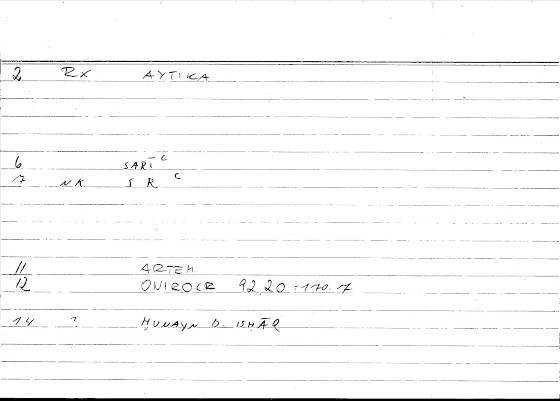 2 RX AYTIKA
6 SART C
7 NK S R C
11 ARTEM
12 ONIROCR 92,20-170.7
14 ? ḤUNAYN B. ISḤĀQ